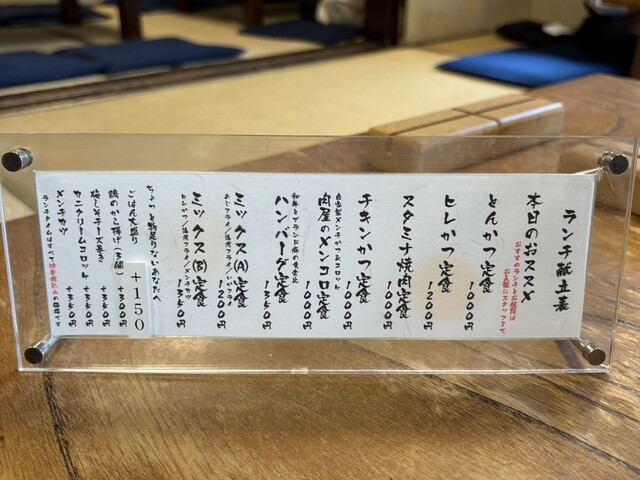 ランチ献立表
本日のおススメ
おすすめランチとお値段は
お気軽にスタッフまで。
とんかつ定食
1000円
ヒレかつ定食
1200円
スタミナ焼肉定食
1000円
チキンかつ定食
1000円
自家製メンチかつ&コロッケ
肉屋のメンコロ定食
1000円
和牛とブランド豚の黄金比
ハンバーグ定食
1340円
ミックス(A)定食
1200円
ミックス(B)定食
1340円
ヒレかつ/海老フライ/メンチカツ
ちょっと物足りないあなたへ
ごはん大盛り
+150
鶏のから揚げ(3個)
+300円
梅しそチーズ巻き
+340円
カニクリームコロッケ
+340円
メンチカツ
+340円
ランチタイムはすべて消費税込みの価格です